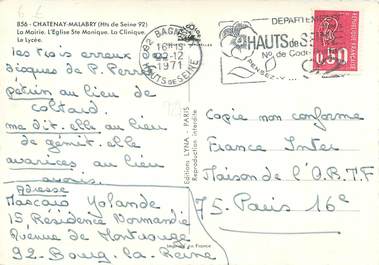 856 - CHATENAY-MALABRY (Hts de Seine 92)
La Mairie. L'Eglise Ste Monique. La Clinique.
Le Lycée.
les trois erreurs
disques de P. Perret
pétrin au lieu de
costard
me dit-elle au lieu
de gémit-elle
avarices au lieu
avaris.
Adresse
Mascaro Yolande
15 Résidence Normandie
Avenue de Montrouge
92. Bourg-la-Reine
Editions LYNA - PARIS
Reproduction interdite
Imprimé en France
92 BAGNEUX
16H15
22-12
1971
HTS DE SEINE
DEPARTEMENT
HAUTS de SEINE
No de Code
PENSEZ-Y
0,50
REPUBLIQUE FRANÇAISE
POSTES
Copie non conforme
France Inter
Maison de l'O.R.T.F
75-Paris 16e